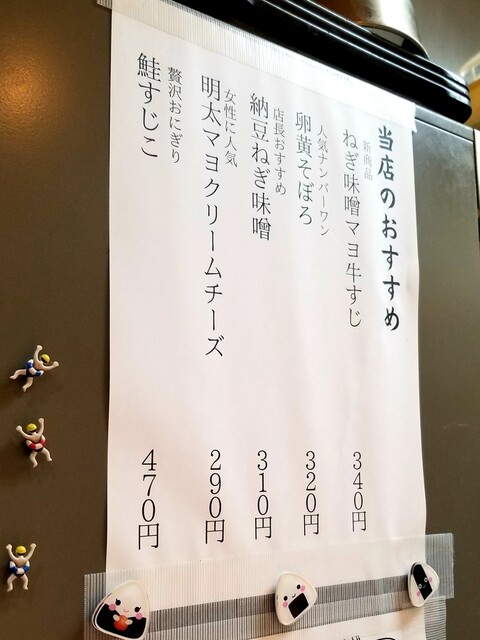 当店のおすすめ
新商品
ねぎ味噌マヨ牛すじ 340円
人気ナンバーワン
卵黄そぼろ 320円
店長おすすめ
納豆ねぎ味噌 310円
女性に人気
明太マヨクリームチーズ 290円
贅沢おにぎり
鮭すじこ 470円